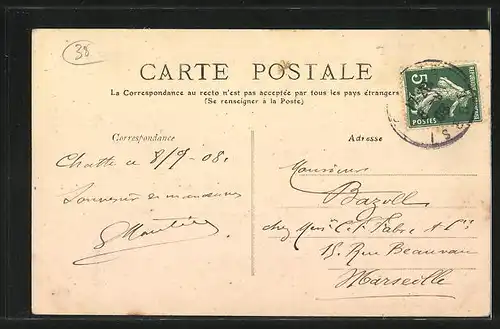 38
CARTE POSTALE
La Correspondance au recto n'est pas acceptée par tous les pays étrangers
(Se renseigner à la Poste)
5
POSTES
Correspondance
Adresse
Chatte ce 8/9-08.
Souvenir de
Monsieur
Bazoll
chez
Fabre &
15, Rue Beauvau
Marseille